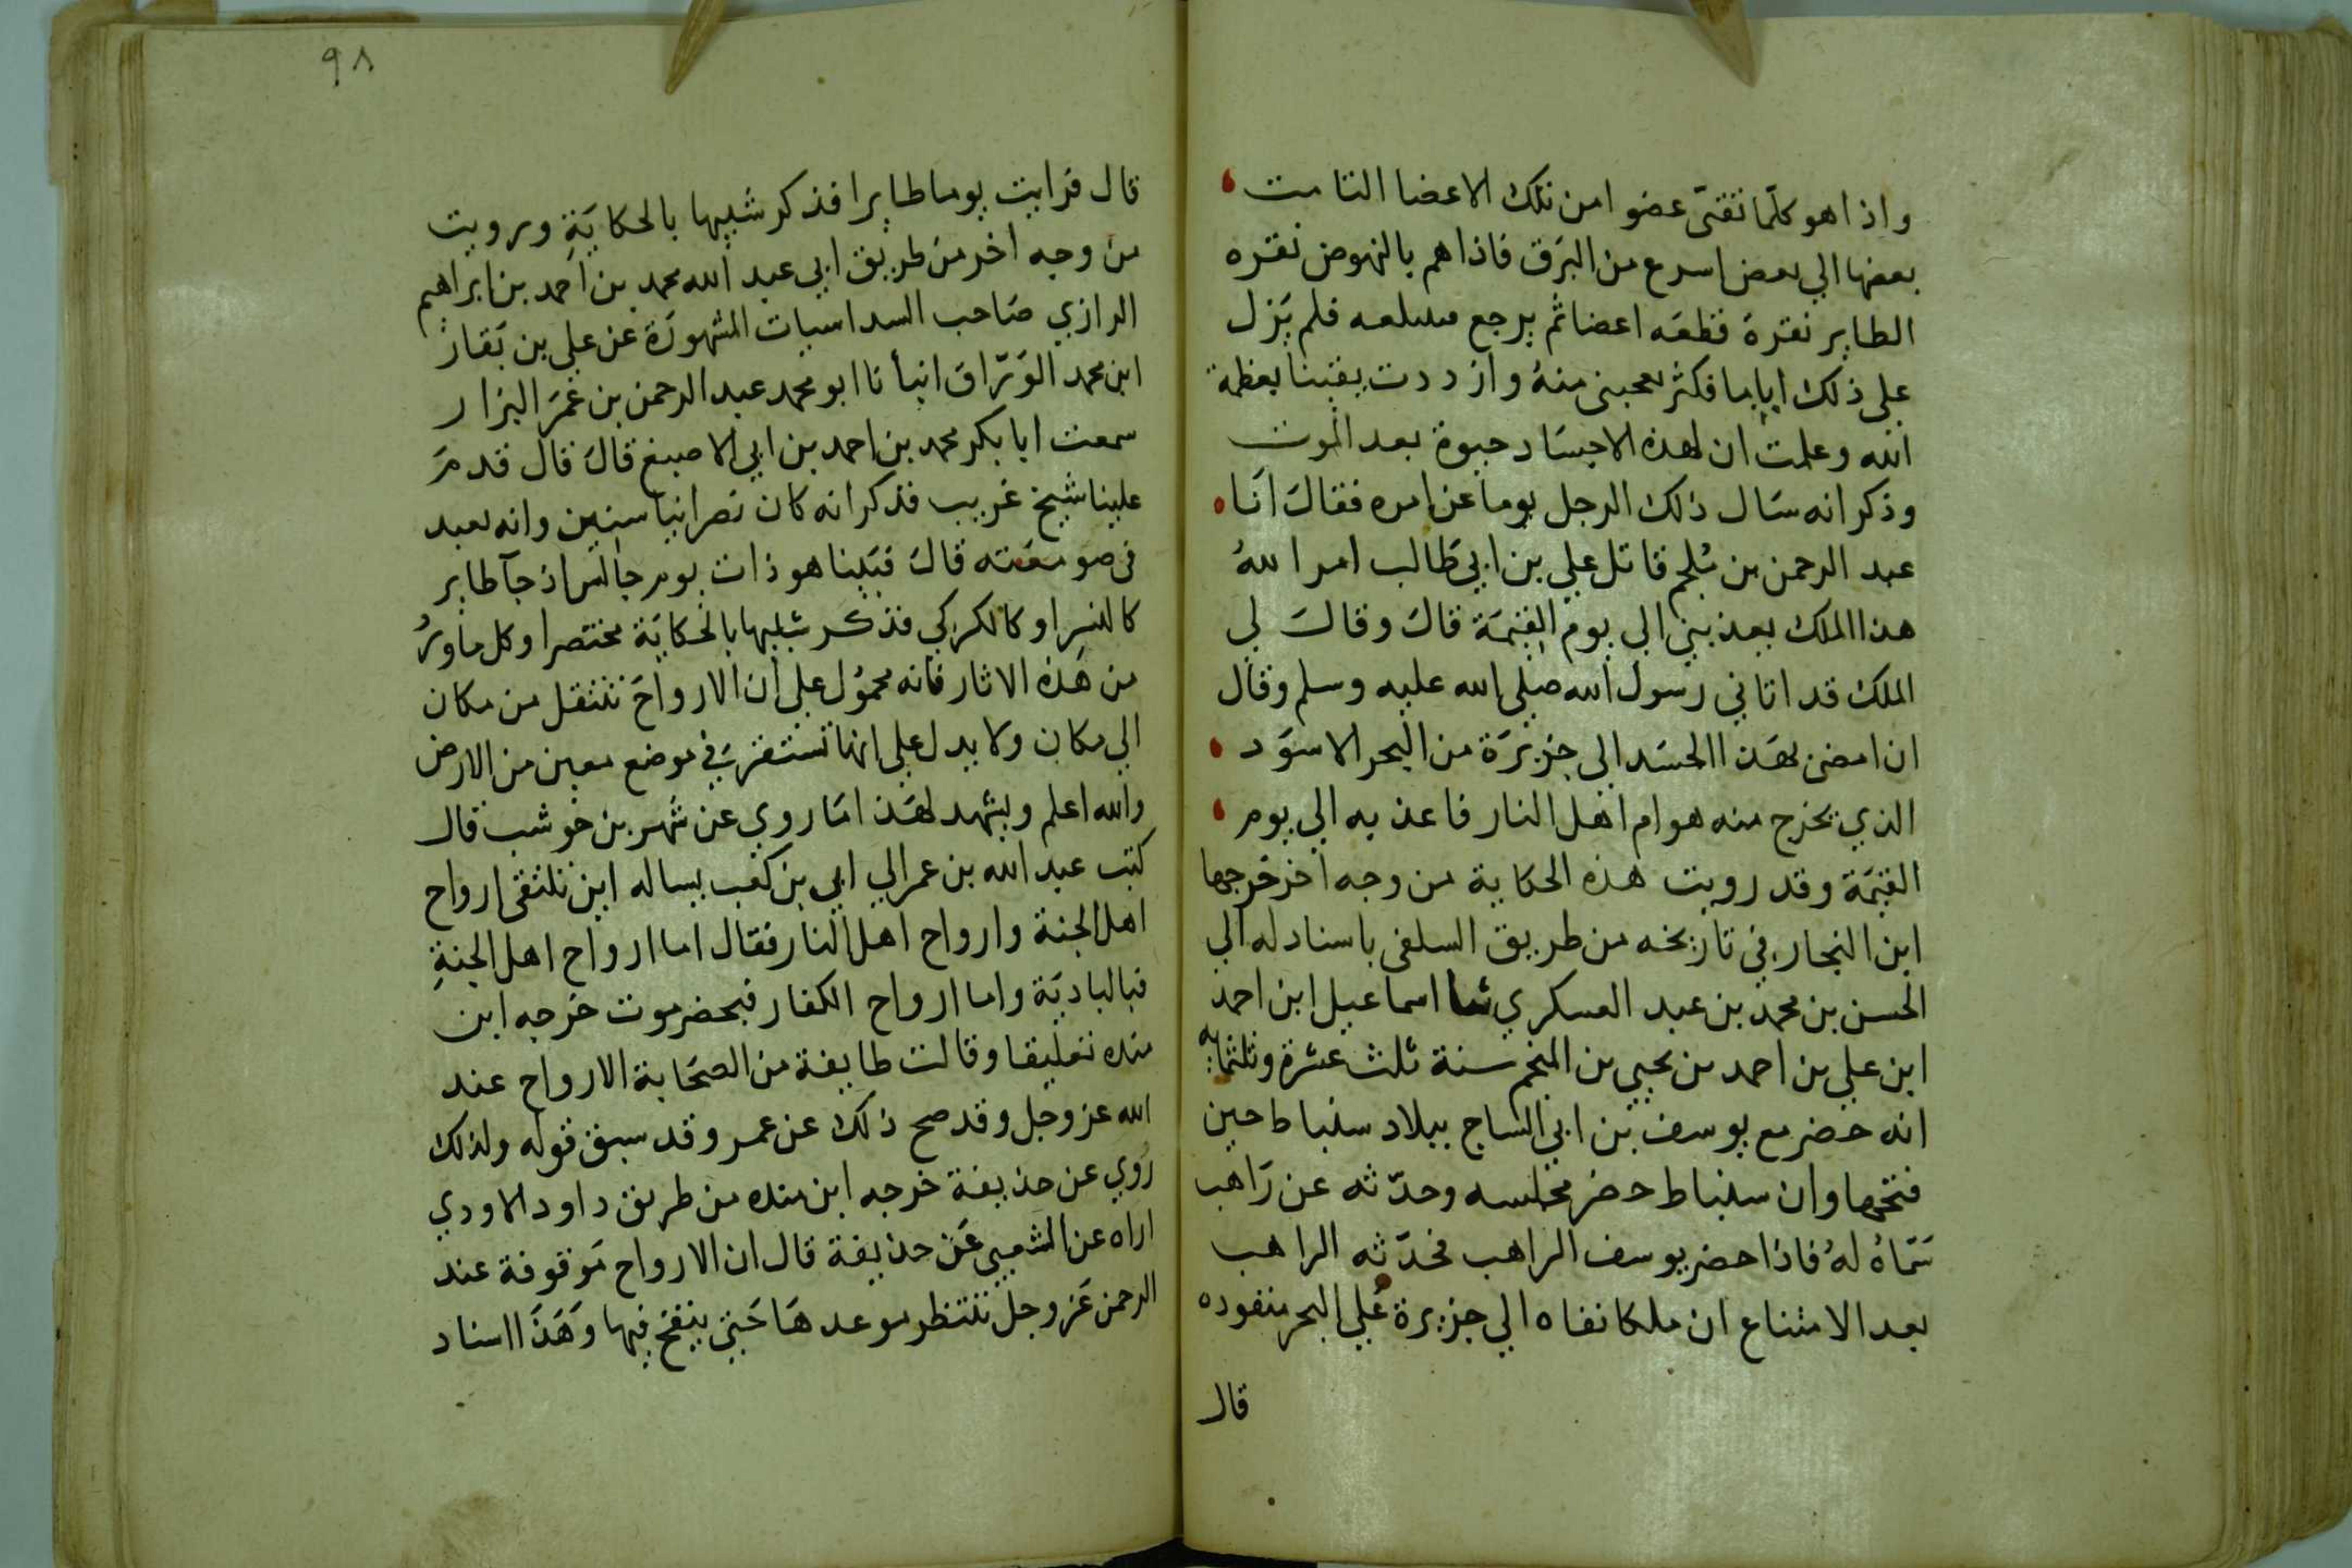 واذا هو كلّما تقيّ عضوا من تلك الاعضا التامت
بعضها الي بعض اسرع من البرق فاذا هم بالنهوض نقره
الطاير نقرة قطعَه اعضا ثم يرجع فيبتلعه فلم يَزل
علي ذلك اياما فكثر تعجبي منهُ وازددت يقينا بعظمة
الله وعلمت ان لهذه الاجسَاد حيوة بعد الموت
وذكر انه سَال ذلك الرجل يوما عن امره فقالَ انَا
عبد الرحمن بن مُلجم قاتل علي بن ابي طَالب امر اللهُ
هذا الملك يعذبني الي يوم القيٰمَة قالَ وقالَ لي
الملك قد اتاني رسول الله صلي الله عليه وسلم وقال
ان امضي بهَذا الجسَد الي جزيرَة من البحر الاسوَد
الذي يخرج منه هوام اهل النار فاعذبه الي يوم
القيٰمَة وقد رويت هذه الحكاية من وجه اخر خرجها
ابن النجار في تاريخه من طريق السلفي باسناد له الي
الحسن بن محمد بن عبد العسكري ثنا اسماعيل ابن احمد
ابن علي بن احمد بن يحيي بن المنجم سنة ثلث عشرة وثلثمايه
انه حضر مع يوسف بن ابي الساج ببلاد سنباط حين
فتحها وان سنباط حضر مجلسه وحدّثه عن رَاهب
سَمّاهُ لهُ فاذا حضر يوسف الراهب فحدّثه الراهب
بعد الامتناع ان ملكا نفاه الي جزيرة عُلي البحر منفوده
قال
٩٨
قال فرايت يوما طايرا فذكر شبيها بالحكايَةِ ورويت
من وجه اخر من طريق ابي عبد الله محمد بن احمد بن ابراهيم
الرازي صَاحب السداسيات المشهورَة عن علي بن بَقار
ابن محمد الوَرّاق انبأنا ابو محمد عبد الرحمن بن عُمَر البزار
سمعت ابا بكر محمد بن احمد بن ابي الاصبغ قالَ قال قدمَ
علينا شيخ غريب فذكر انه كان نَصرانيا سنين وانه تعبد
في صومعَته قالَ فبَينا هو ذات يوم جالس اذ جآ طاير
كالنسر او كالكركي فذكر شبيها بالحكايَة مختصرا وكل ماورُ
من هَذه الاثار فانه محموُل علي ان الارواحَ تنتقل من مكان
الي مكان ولا يدل علي انها تستقر في موضع معين من الارض
والله اعلم ويشهد لهَذا مَا روي عن شَهر بن حَوشب قال
كتب عبد الله بن عمر الي ابي بن كعب يساله اين تلتقي ارواح
اهل الجنة وارواح اهل النار فقال اما ارواح اهل الجنةِ
فبالباديَة واما ارواح الكفار فبحضرموت خرجه ابن
منده تعليقا وقالت طايفة من الصحَابة الارواح عند
الله عز وجل وقد صح ذلك عن عمر وقد سبق قوله ولذلك
رُوي عن حذيفة خرجه ابن منده من طريق داود الاودي
اراه عن الشعبي عَن حذيفة قال ان الارواح مَوقوفة عند
الرحمن عَز وجل تنتظر موعدهَا حَتي ينفخ فيها وَهَذَا اسناد